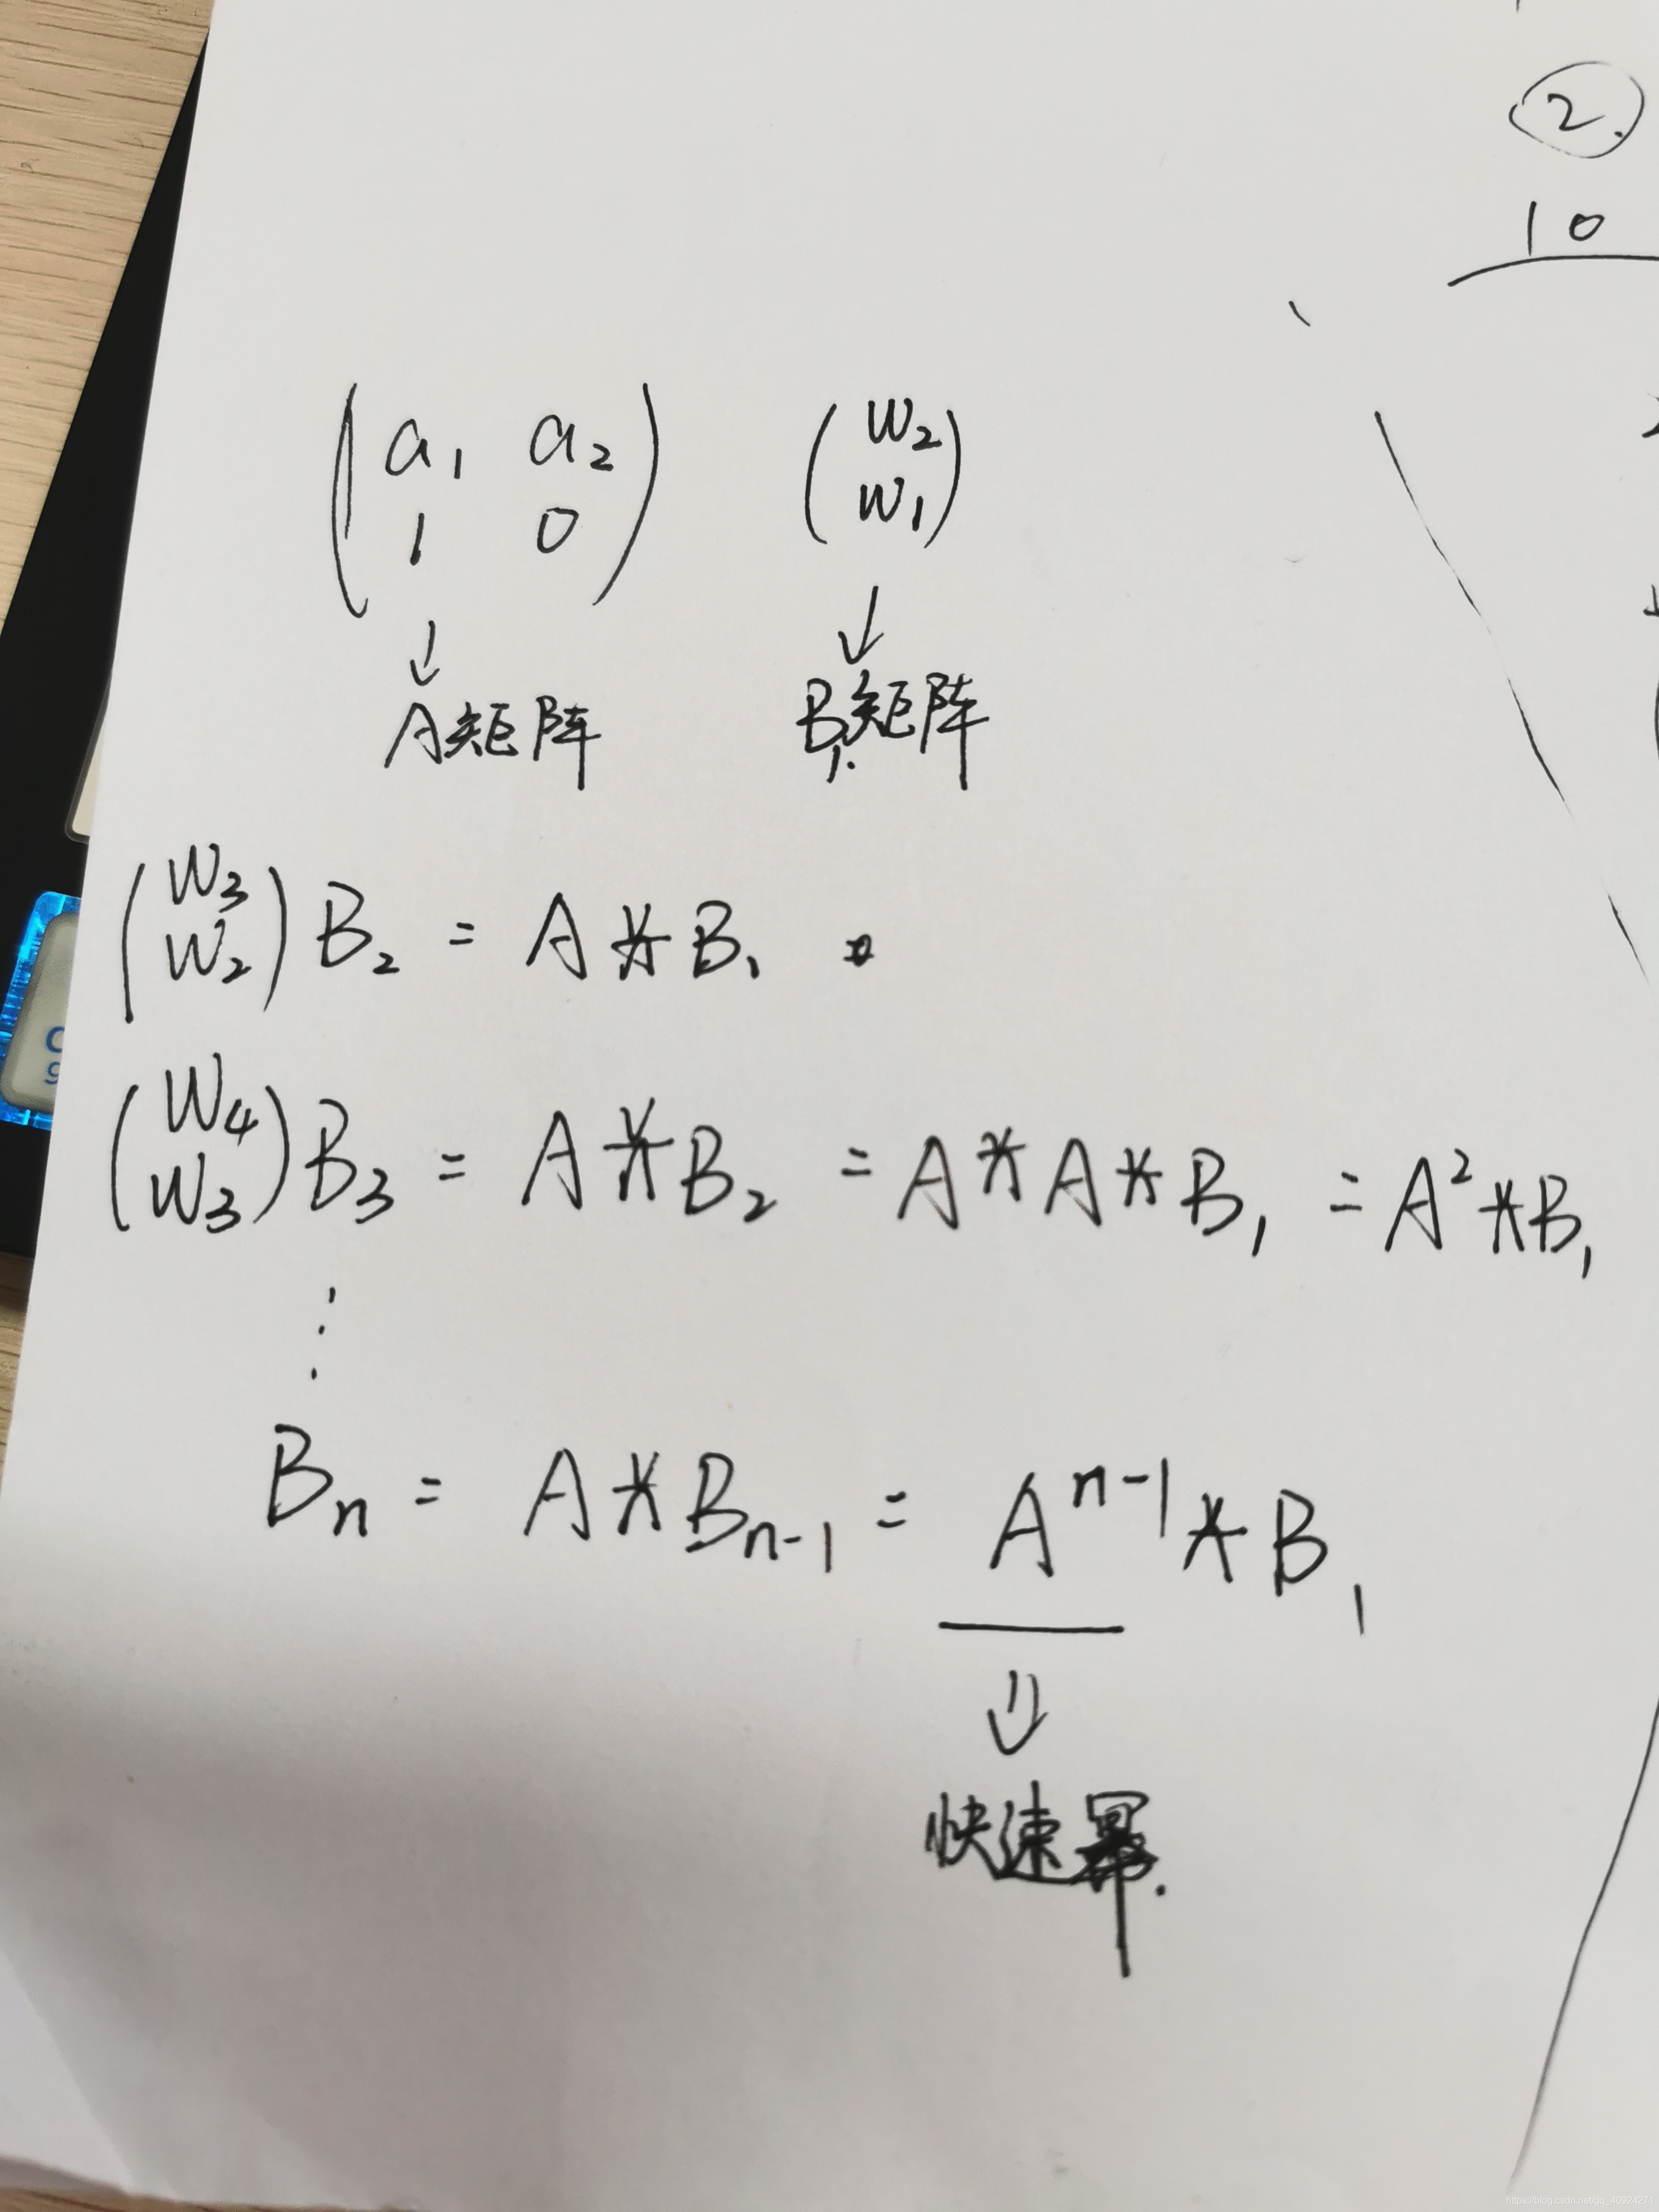 ②
10
(a₁ a₂
1 0)
(w₂
w₁)
↓ ↓
A矩阵 B₁矩阵
(w₃
w₂) B₂ = A * B₁
(w₄
w₃) B₃ = A * B₂ = A * A * B₁ = A² * B₁
⋮
Bₙ = A * Bₙ₋₁ = Aⁿ⁻¹ * B₁
⇓
快速幂.
https://blog.csdn.net/qq_40924271